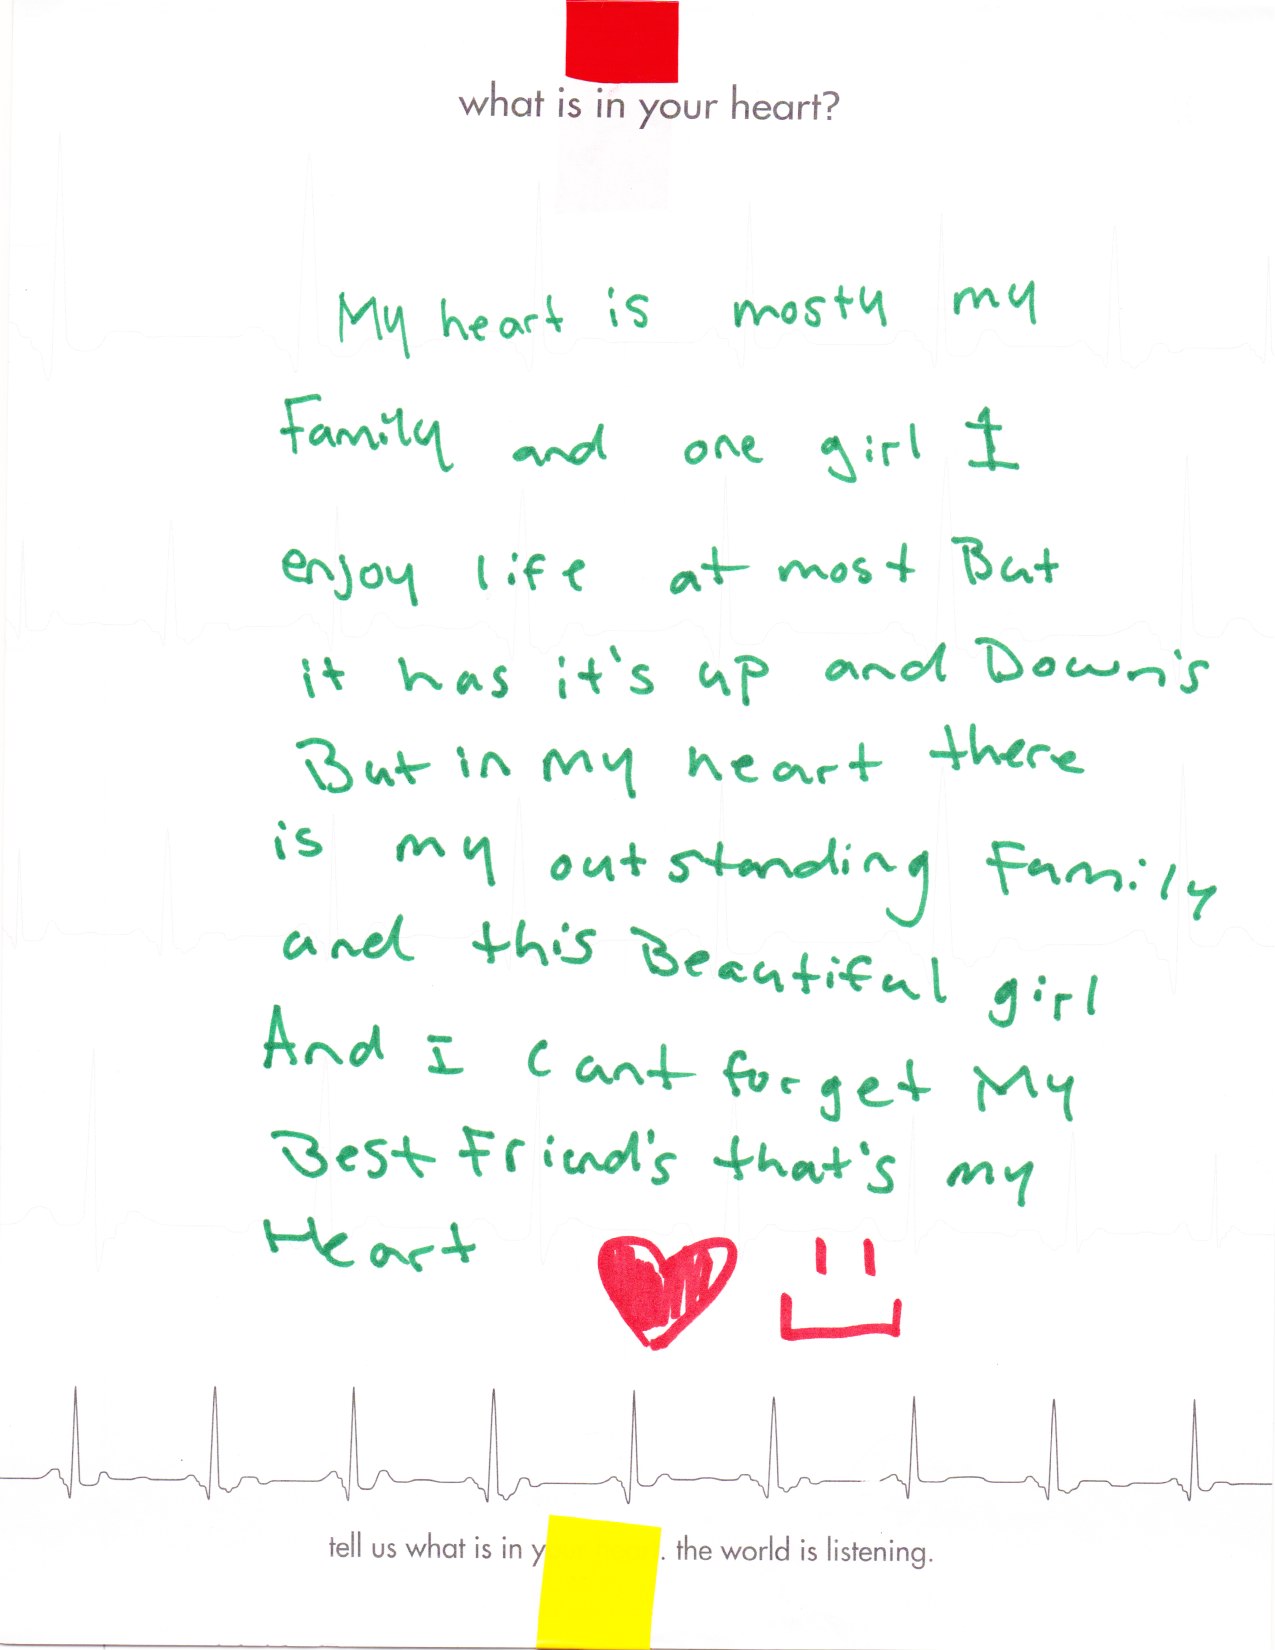 what is in your heart?
My heart is mosty my
Family and one girl I
enjoy life at most But
it has it's up and Down's
But in my heart there
is my outstanding Family
and this Beautiful girl
And I cant forget My
Best Friend's that's my
Heart
tell us what is in y . the world is listening.